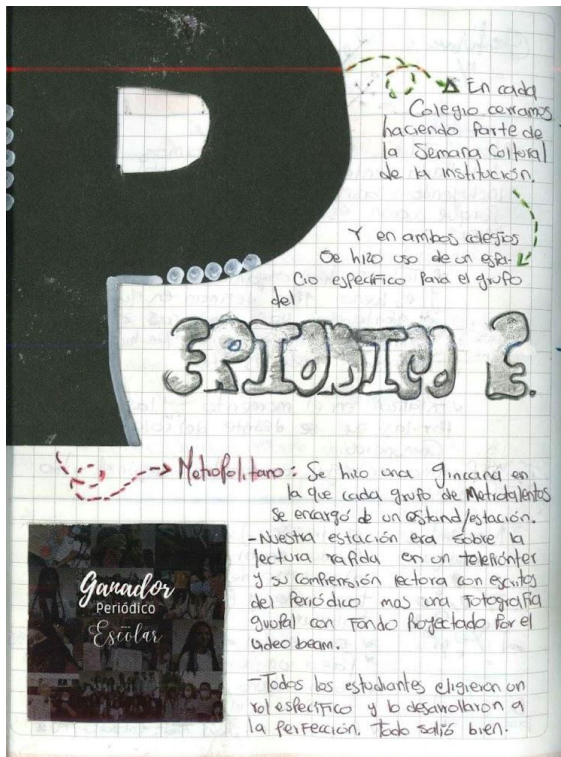 En cada
Colegio cerramos
haciendo Parte de
la Semana Coltural
de la institución.
Y en ambos colegios
Se hizo uso de un espa-
cio específico Para el grupo
del
PERIODICO E.
Metropolitano: Se hizo una gincana en
la que cada grupo de Metrotalentos
Se encargó de un estand/estación.
- Nuestra estación era sobre la
lectura rapida en un teleprónter
y su comprensión lectora con escritos
del Periódico mas una Fotografía
grupal con Fondo Proyectado Por el
video beam.
- Todos los estudiantes eligieron un
rol específico y lo desarrollaron a
la perfección. Todo salió bien.
Ganador
Periódico
Escolar